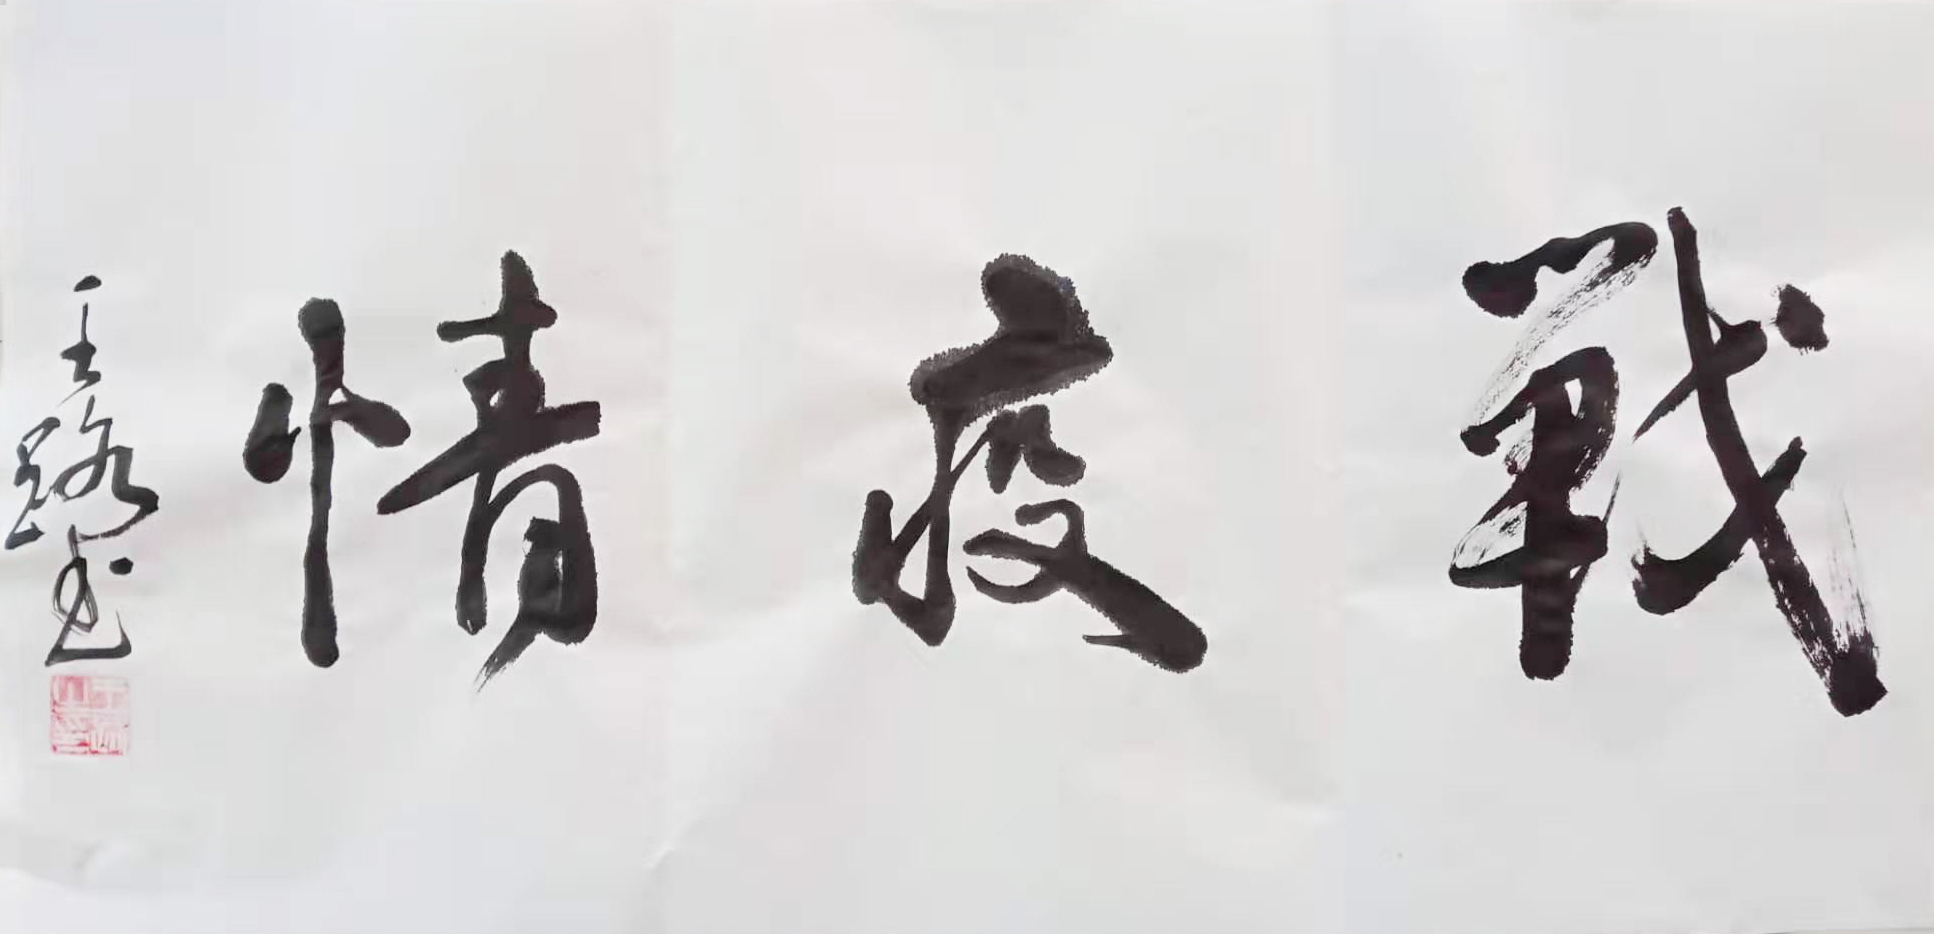 戰疫情
王路书